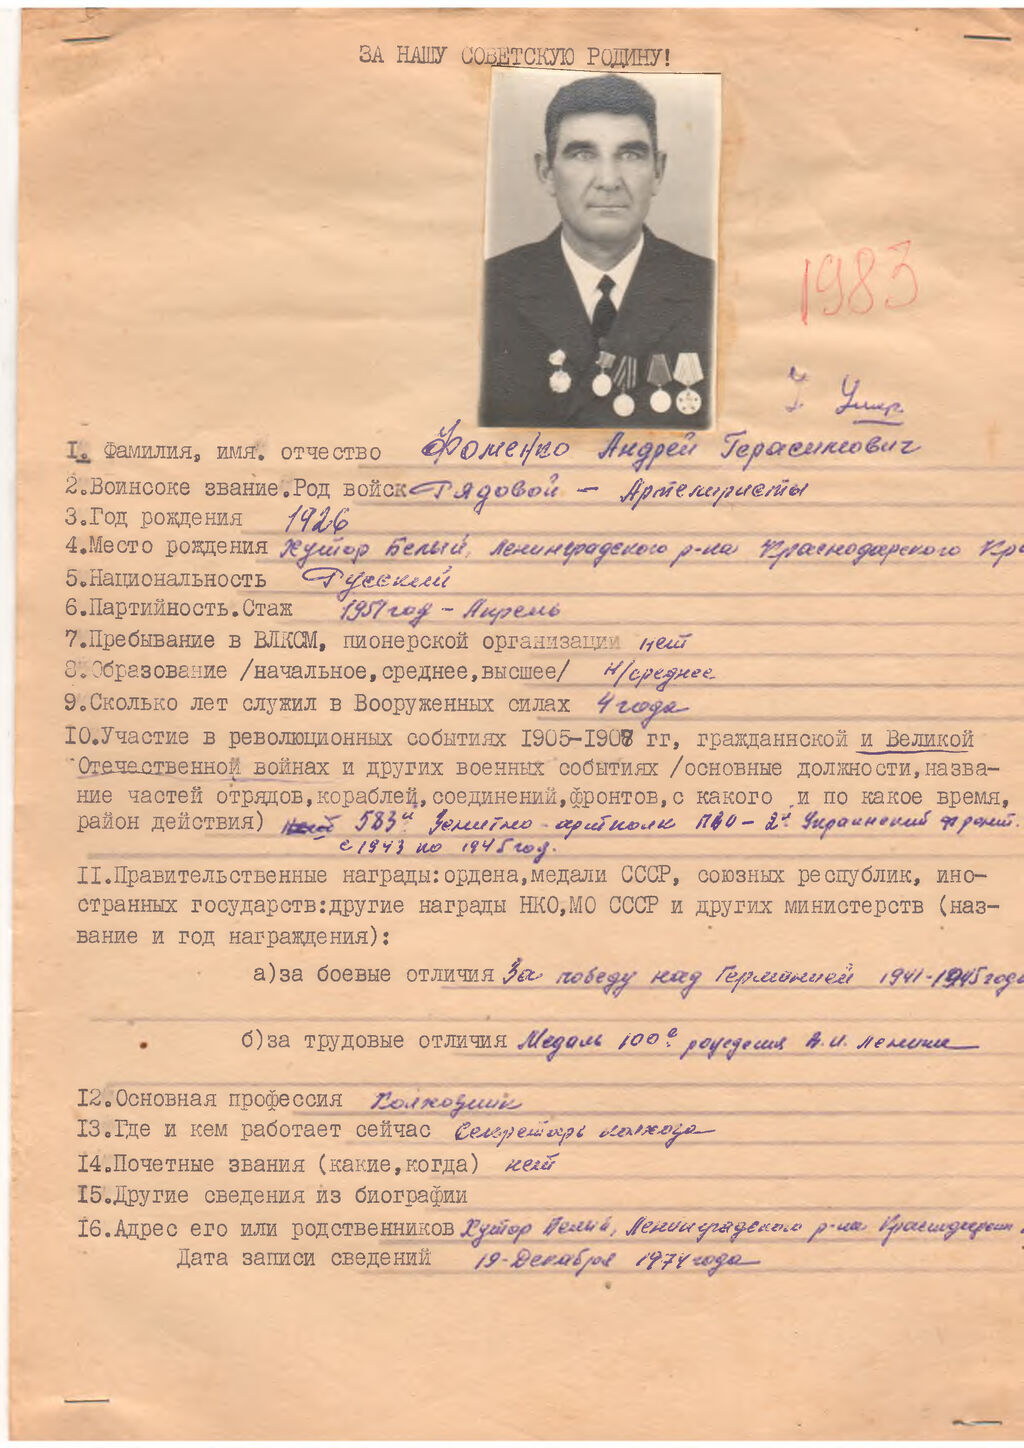 ЗА НАШУ СОВЕТСКУЮ РОДИНУ!
1983
Умер
I. Фамилия, имя. отчество Фоменко Андрей Герасимович
2.Воинсоке звание.Род войск Рядовой – Артелиристы
3.Год рождения 1926
4.Место рождения Хутор Белый, Ленинградского р-на Краснодарского Кр
5.Национальность Русский
6.Партийность.Стаж 1951 год – Апрель
7.Пребывание в ВЛКСМ, пионерской организации нет
8.Образование /начальное,среднее,высшее/ н/среднее
9.Сколько лет служил в Вооруженных силах 4 года
IO.Участие в революционных событиях I905-I907 гг, гражданнской и Великой
Отечественной войнах и других военных событиях /основные должности,назва-
ние частей отрядов,кораблей,соединений,фронтов,с какого и по какое время,
район действия) нет 583й Зенитно-артполк ПВО – 2й Украинский фронт.
с 1943 по 1945 год.
II.Правительственные награды:ордена,медали СССР, союзных республик, ино-
странных государств:другие награды НКО,МО СССР и других министерств (наз-
вание и год награждения):
а)за боевые отличия За победу над Германией 1941-1945 года
б)за трудовые отличия Медаль 100е рождения В.И. Ленина
I2.Основная профессия Колхозник
I3.Где и кем работает сейчас Секретарь колхоза
I4.Почетные звания (какие,когда) нет
I5.Другие сведения из биографии
I6.Адрес его или родственников Хутор Белый, Ленинградского р-на
Дата записи сведений 19-Декабря 1974 года